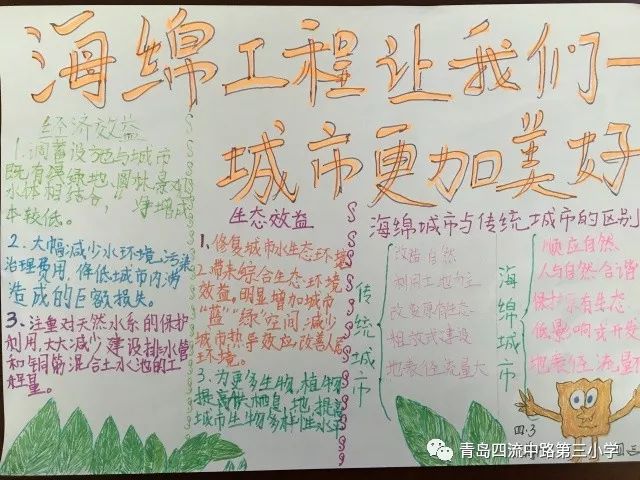 海绵工程让我们一
城市更加美好
经济效益
1.调蓄设施与城市
既有绿地、园林、景观
水体相结合，"净增成
本较低。
2.大幅减少水环境污染
治理费用，降低城市内涝
造成的巨额损失。
3.注重对天然水系的保护
利用，大大减少建设排水管
和钢筋混合土水池的工
程量。
生态效益
1.修复城市水生态环境
2.带来综合生态环境
效益。明显增加城市
"蓝""绿"空间，减少
城市热导效应，改善人居
环境。
3.为更多生物，植物
提高供栖息地，提高
城市生物多样性水平
海绵城市与传统城市的区别
传统城市
改造自然
利用土地为主
改变原有生态
粗放式建设
地表径流量大
海绵城市
顺应自然
人与自然合谐
保护原有生态
低影响式开发
地表径流量
四.3
四三
青岛四流中路第三小学